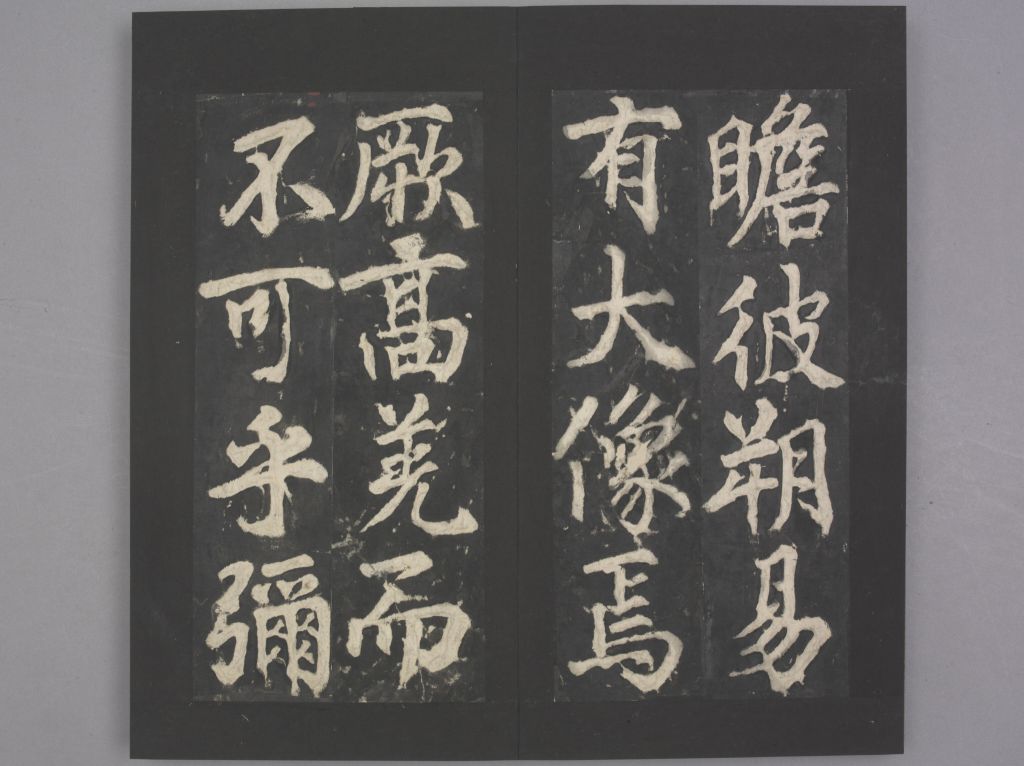 瞻彼朔易
有大像焉
厥高羌而
不可乎彌